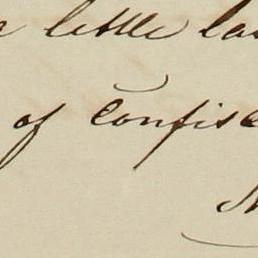 a little la
of confisc